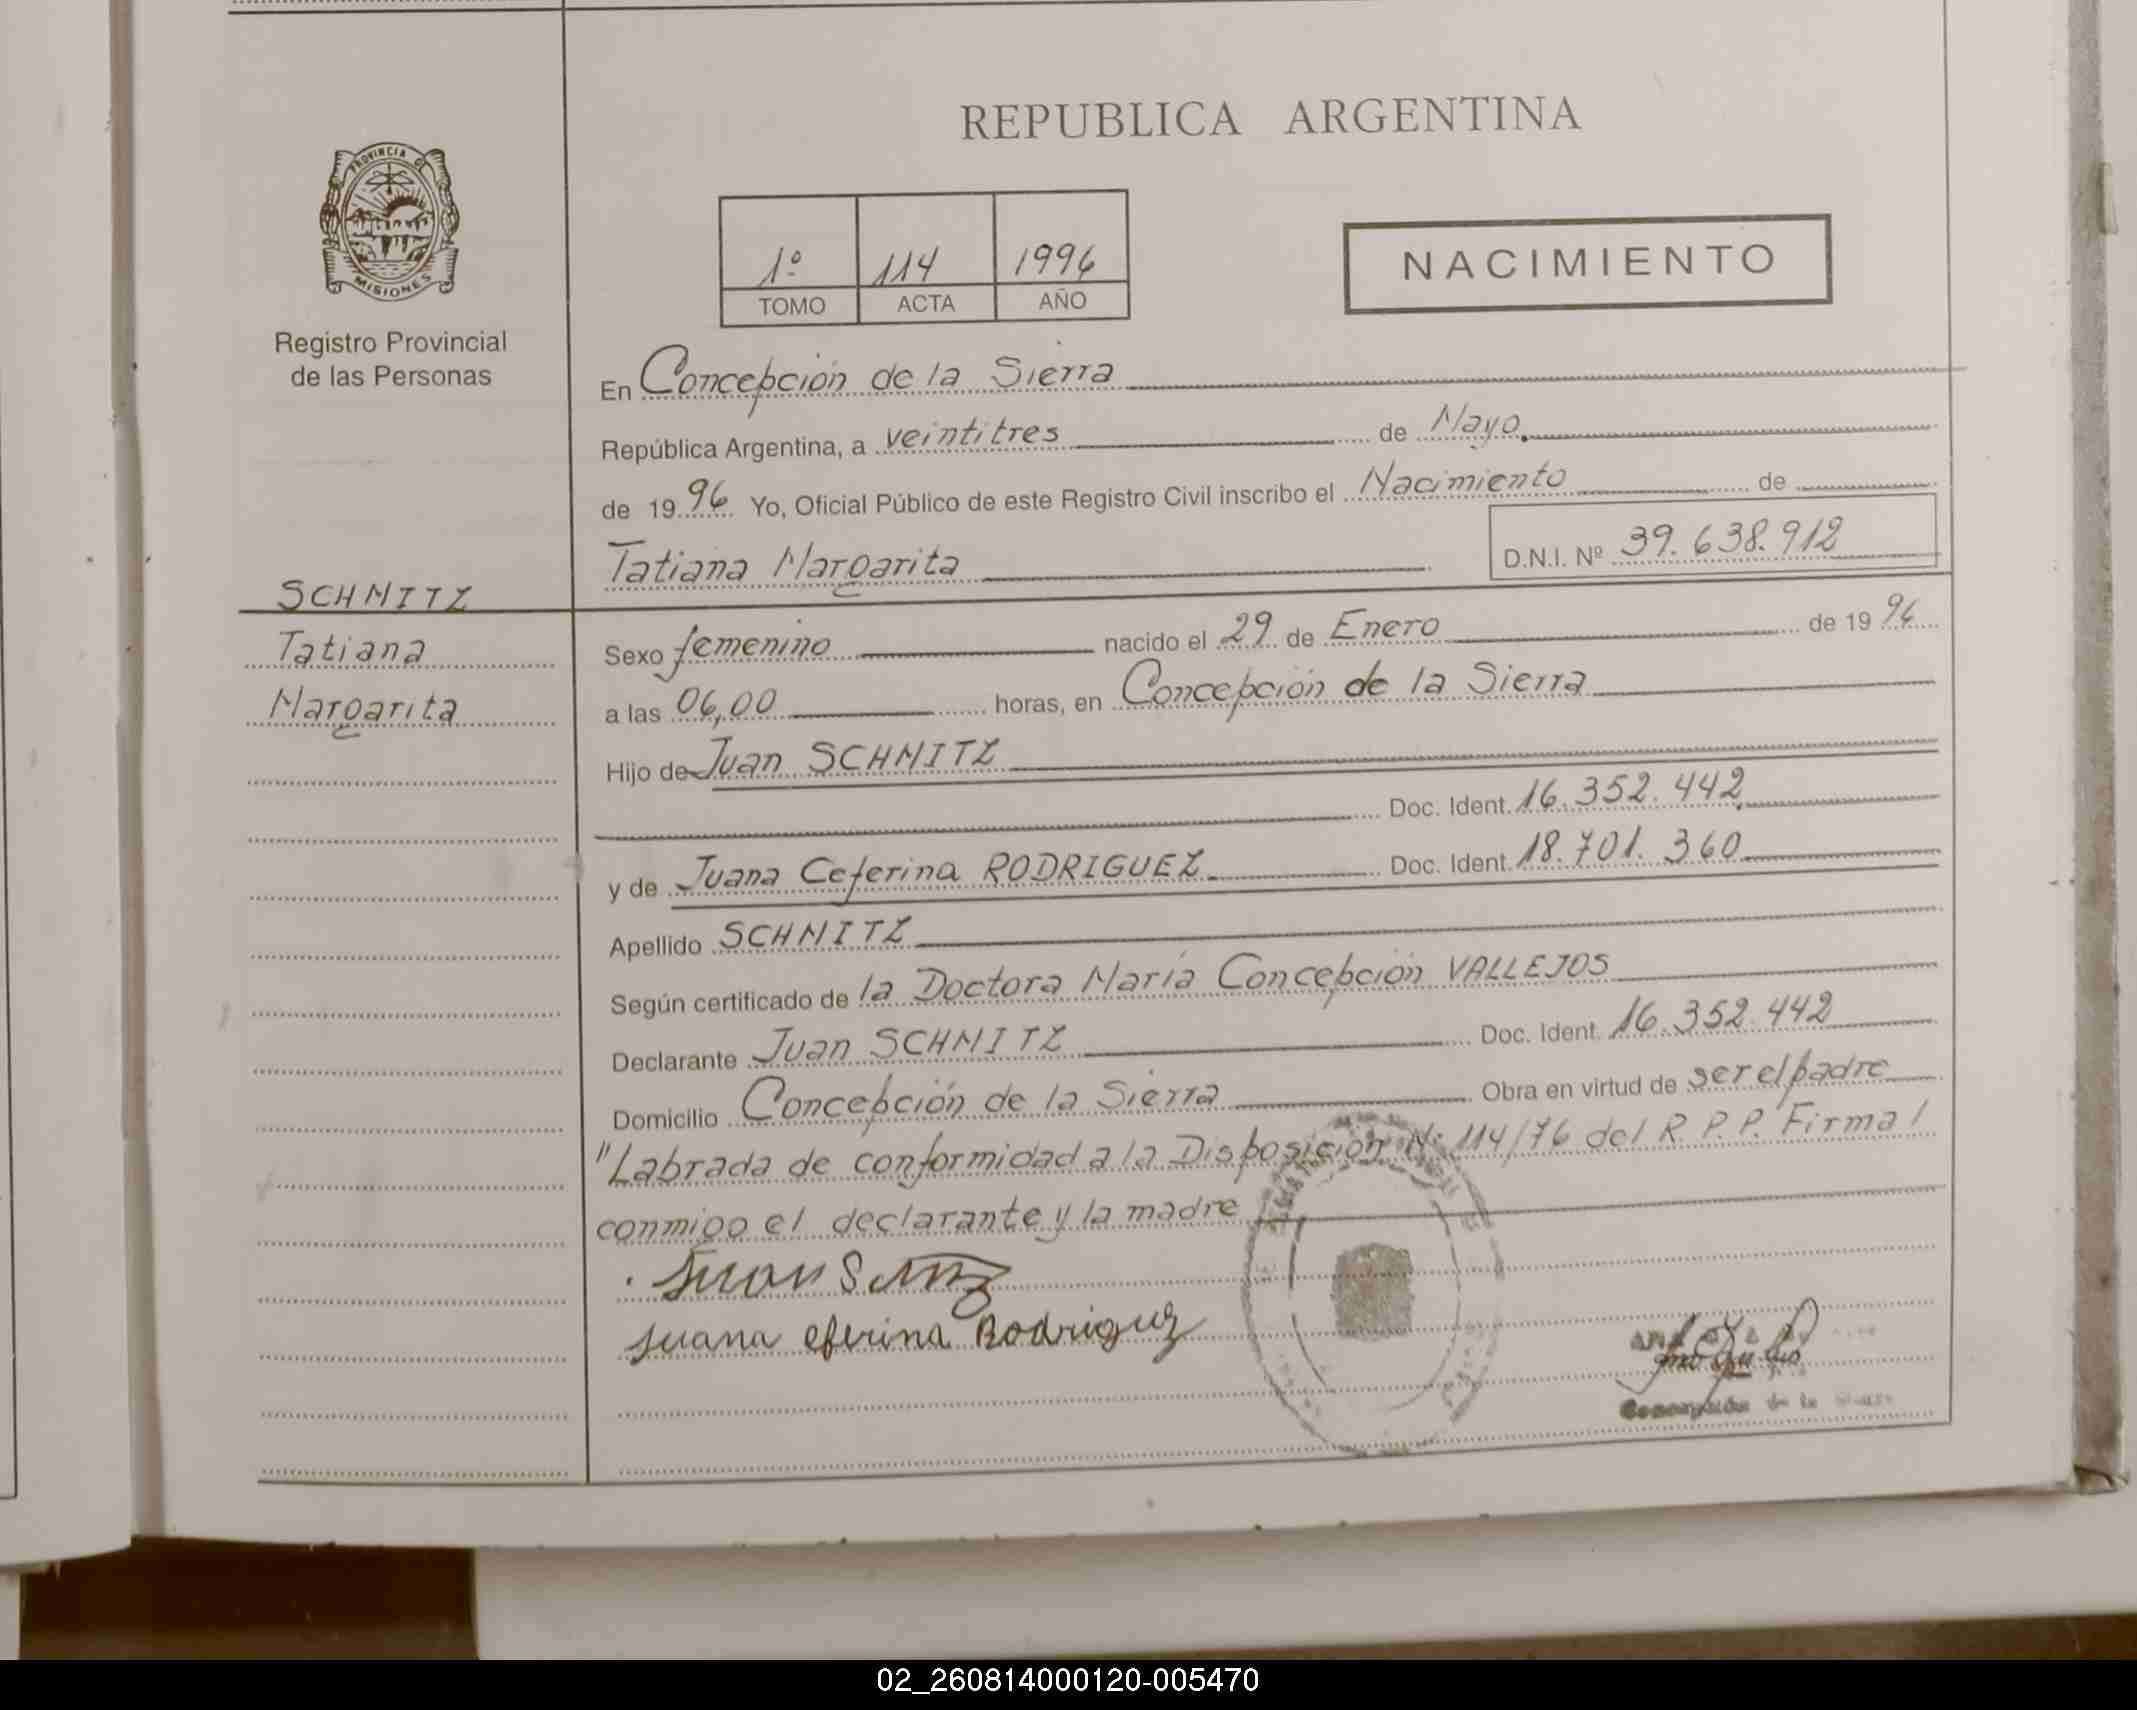 REPUBLICA ARGENTINA
PROVINCIA DE
MISIONES
Registro Provincial
de las Personas
1º 114 1996
TOMO ACTA AÑO
NACIMIENTO
En Concepción de la Sierra
República Argentina, a veintitres de Mayo
de 1996 Yo, Oficial Público de este Registro Civil inscribo el Nacimiento de
Tatiana Margarita D.N.I. Nº 39.638.912
SCHMITZ
Tatiana
Margarita
Sexo femenino nacido el 29 de Enero de 1996
a las 06,00 horas, en Concepción de la Sierra
Hijo de Juan SCHMITZ
Doc. Ident. 16.352.442
y de Juana Ceferina RODRIGUEZ Doc. Ident. 18.701.360
Apellido SCHMITZ
Según certificado de la Doctora María Concepción VALLEJOS
Declarante Juan SCHMITZ Doc. Ident. 16.352.442
Domicilio Concepción de la Sierra Obra en virtud de ser el padre
"Labrada de conformidad a la Disposición Nº 114/76 del R.P.P. Firma
conmigo el declarante y la madre
Juan
Juana eferina Rodriguez
Concepción de la
02_260814000120-005470